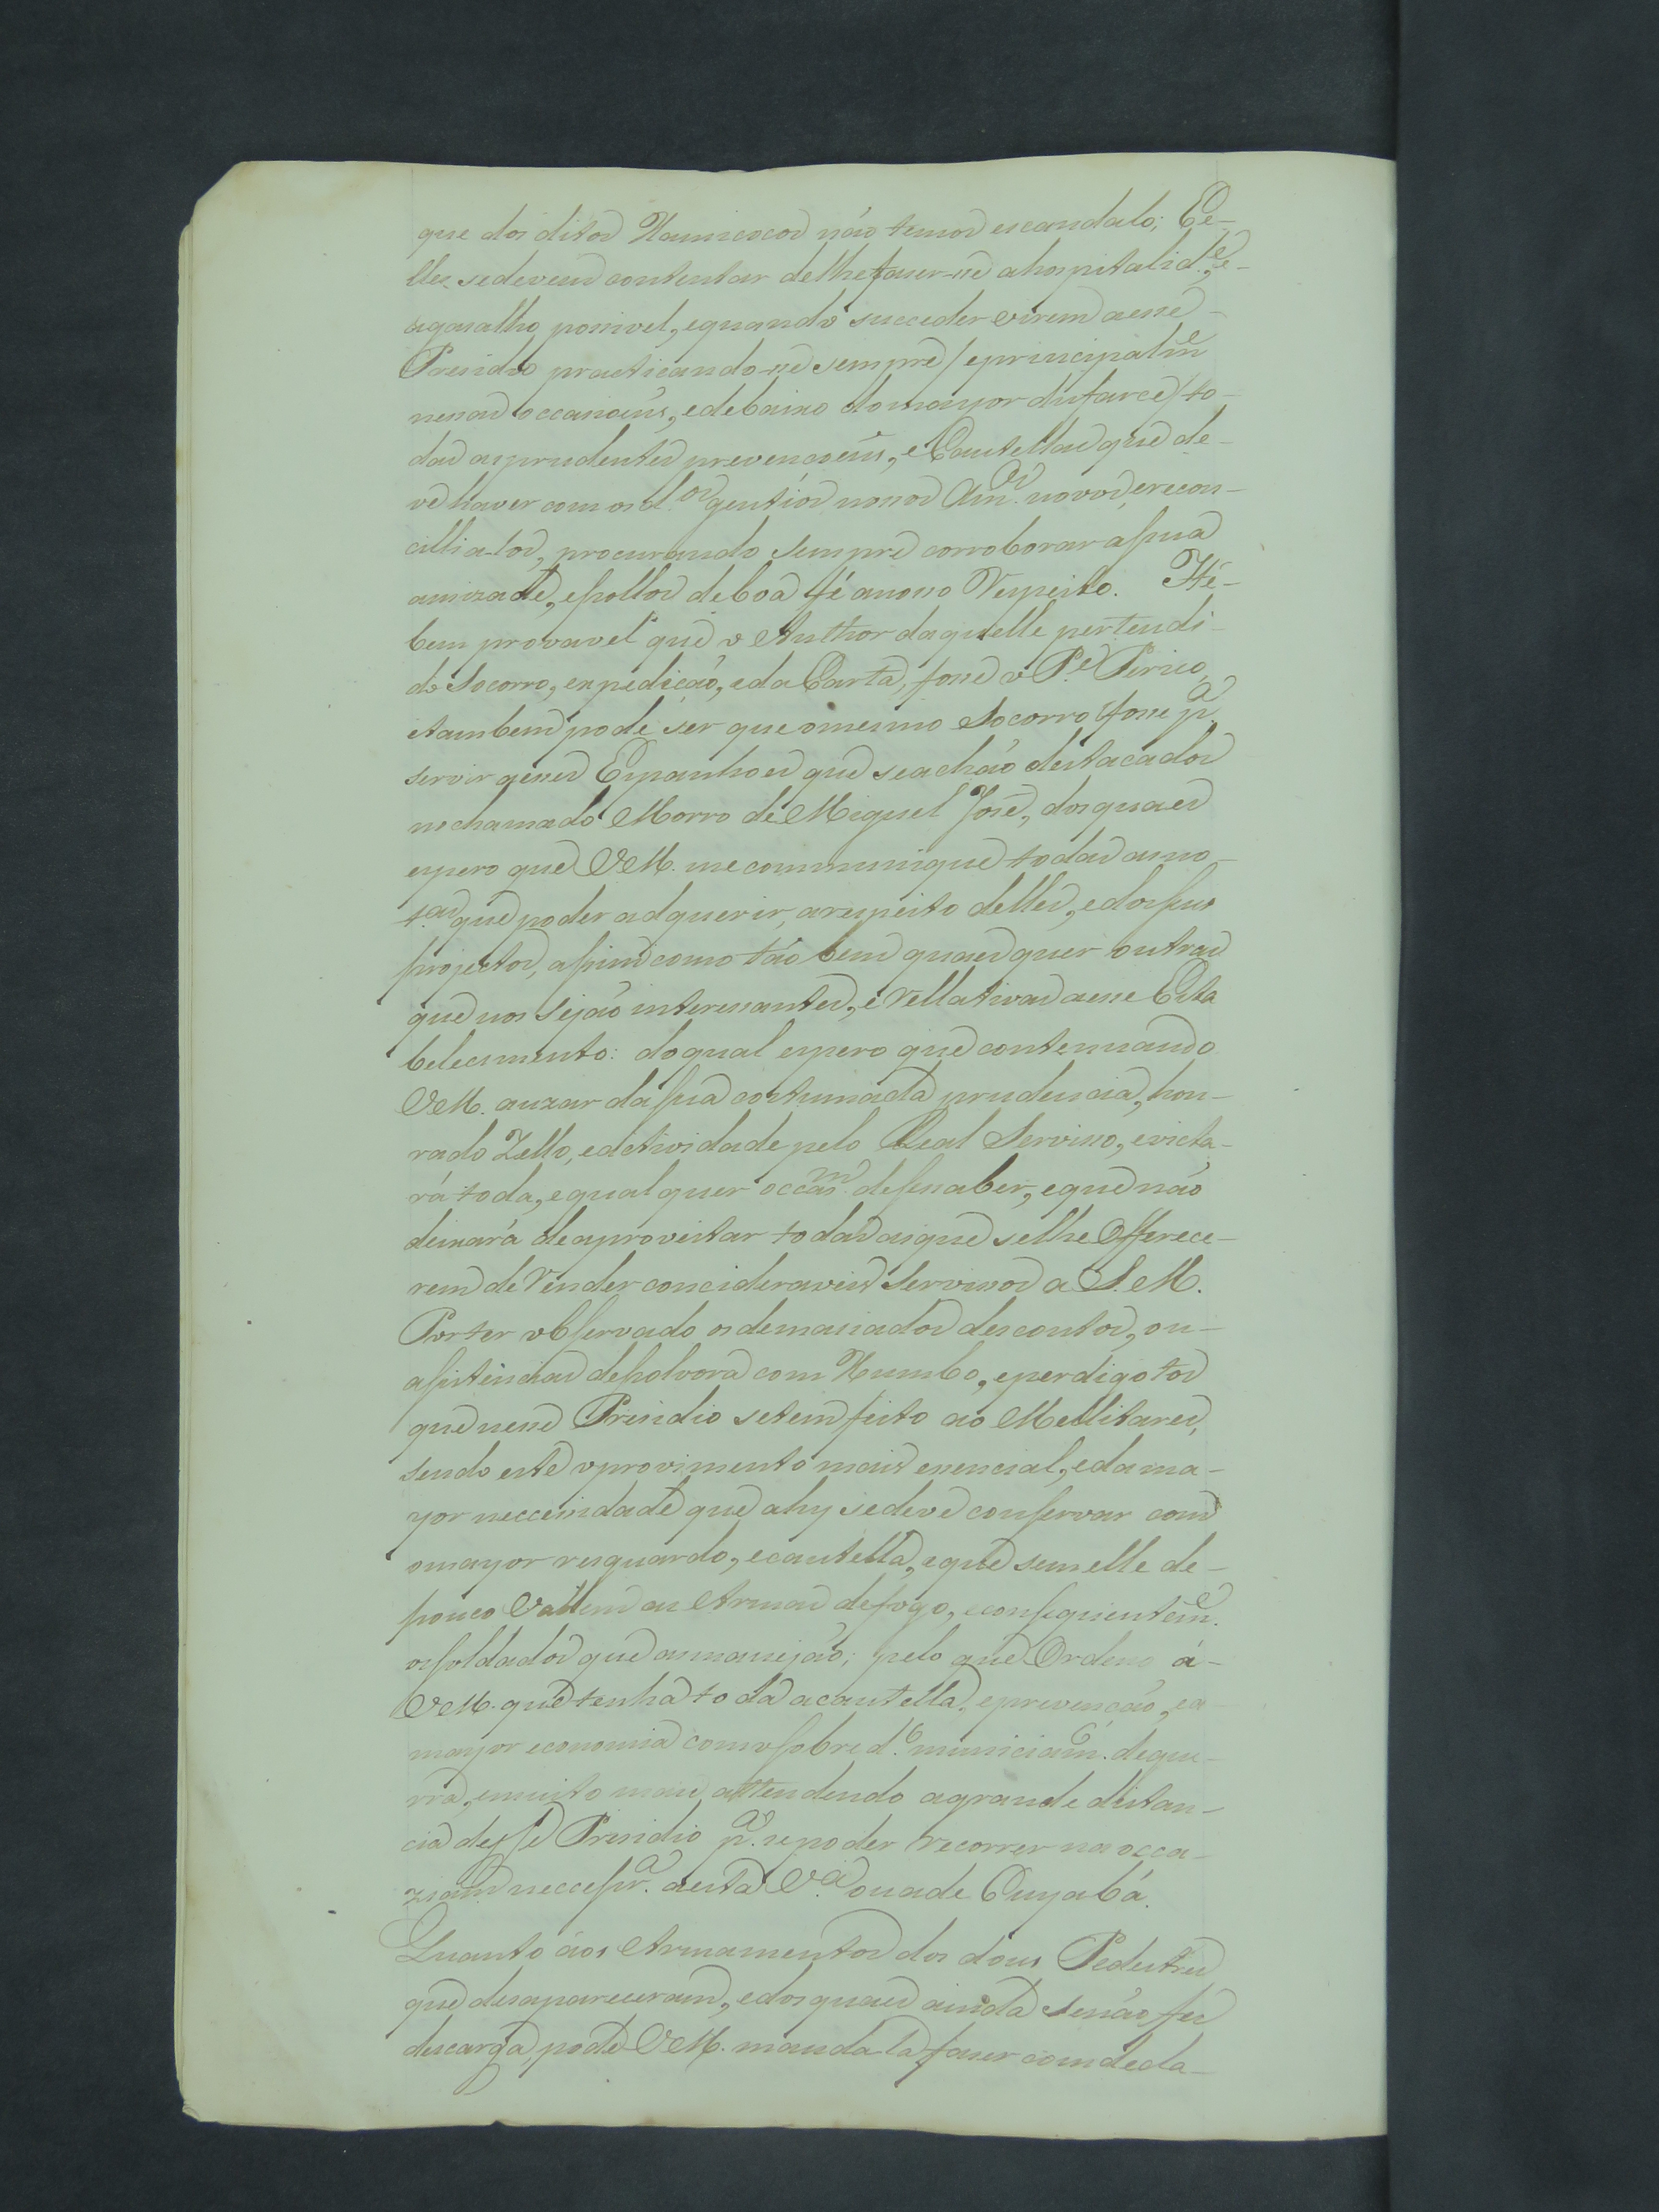 que dos ditos Xamicocos não temos escandalo; Ee-
lles se devem contentar de lhe faser-se a hospitalid.e, e-
agasalho possivel, equando succeder virem a esse
Presidio practicando-se sempre / eprincipalm.e
nessas occasioens, e debaixo do mayor disfarce / to-
das as prudentes prevençoens, e Cautellas que de-
ve haver com os d.os gentios nossos Am.os novos, e recon-
cilliados, procurando sempre corroborar a sua
amizade, e pollos de boa fé a nosso Respeito. Hé-
bem provavel que o Author daquelle pertendi-
do Socorro, expedição, e da Carta, fosse o P.e Perico,
etambem pode ser que o mesmo Socorro fosse p.a
servir a esses Espanhoes que se achão destacados
no chamado Morro de Miguel José, dos quaes
espero que VM. me communique todas as no-
t.as que poder adquerir, a respeito delles, e dos seus
projectos, assim como tão bem quaes quer outras
que nos sejão interessantes, e Rellativas a esse Esta
belecimento: do qual espero que contenuando
VM. a uzar da sua costumada prudencia, hon-
rado Zello, e actividade pelo Real Serviso, evicta-
rá toda, e qualquer occas.m de se saber, e que não
deixará de aproveitar todas as que se lhe Offerece-
rem de Render concideraveis Servisos a S. M.
Por ter observado os demasiados descontos, ou-
assistencias de Polvora com Xumbo, e perdigotos
que nesse Presidio se tem feito ao Mellitares,
sendo este o provimento mais essencial, e da ma-
yor neccessidade que ahy se deve conservar com
o mayor resguardo, e cautella, e que sem elle de-
pouco Vallem as Armas de fogo, e consequentem.e
os soldados que as manejão; pelo que Ordeno á-
VM. que tenha toda a cautella, e prevenção, e a
mayor economia com o sobred.o municiam.to de gue-
rra, e muito mais attendendo a grande distan-
cia desse Presidio p.a se poder recorrer na occa-
ziam neccessr.a a esta V.a ou a de Cuyabá.
Quanto áos Armamentos dos dous Pedestres
que desapareceram, e dos quaes ainda se não fes
descarga, pode VM. mandala faser com decla-